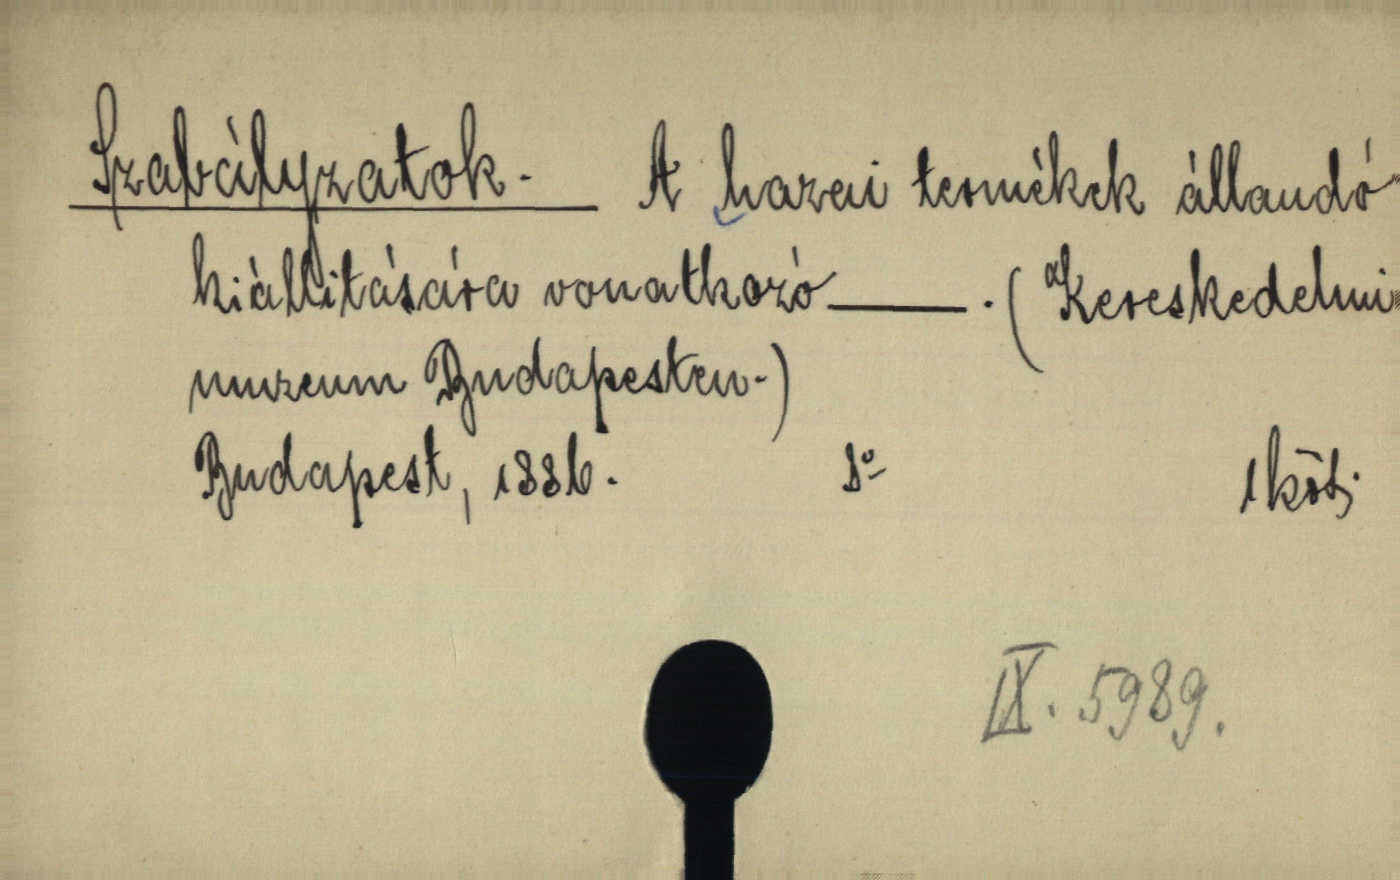 Szabályzatok. A hazai termékek állandó
kiállitására vonatkozó ——. (a Kereskedelmi
muzeum Budapesten.)
Budapest, 1886. 8° 1 köt.
IX. 5989.